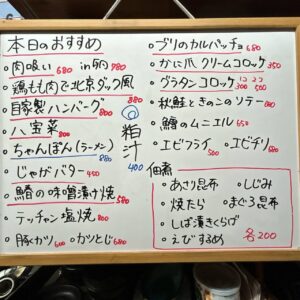 本日のおすすめ
・肉吸い 680 in 豆腐 780
・鶏もも肉で北京ダック風 880
・自家製ハンバーグ 800
・八宝菜 800
・ちゃんぽん(ラーメン) 880
・じゃがバター 450
・鮪の味噌漬け焼 580
・テッチャン塩焼 800
・豚カツ 600 ・カツとじ 680
粕汁 400
・ブリのカルパッチョ 680
・かに爪クリームコロッケ 350
・グラタンコロッケ 1コ 300 2コ 500
・秋鮭ときのこのソテー 780
・鱈のムニエル 650
・エビフライ 500 ・エビチリ 580
佃煮
・あさり昆布 ・しじみ
・焼たら ・まぐろ昆布
・しば漬きくらげ
・えびするめ 各200